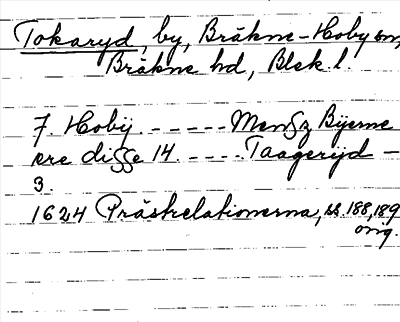 Tokaryd, by, Bräkne-Hoby sn,
Bräkne hd, Blek. l.
7 Hobij. - - - - - - Mengz Byerne
ere disse 14. - - - - - Taagerijd -
3.
1624 Prästrelationerna, ss 188, 189
orig.